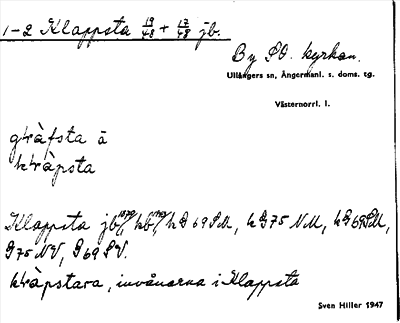 1-2 Klappsta 19/48 + 17/48 jb.
By SO. kyrkan.
Ullångers sn, Ångermanl. s. doms. tg.
Västernorrl. l.
kràpsta
Klappsta jb, kb, k G 69 SM, k G 75 NM, k G 69 SM,
G 75 NV, G 69 SV.
kràpstara, invånarna i Klappsta
Sven Hiller 1947